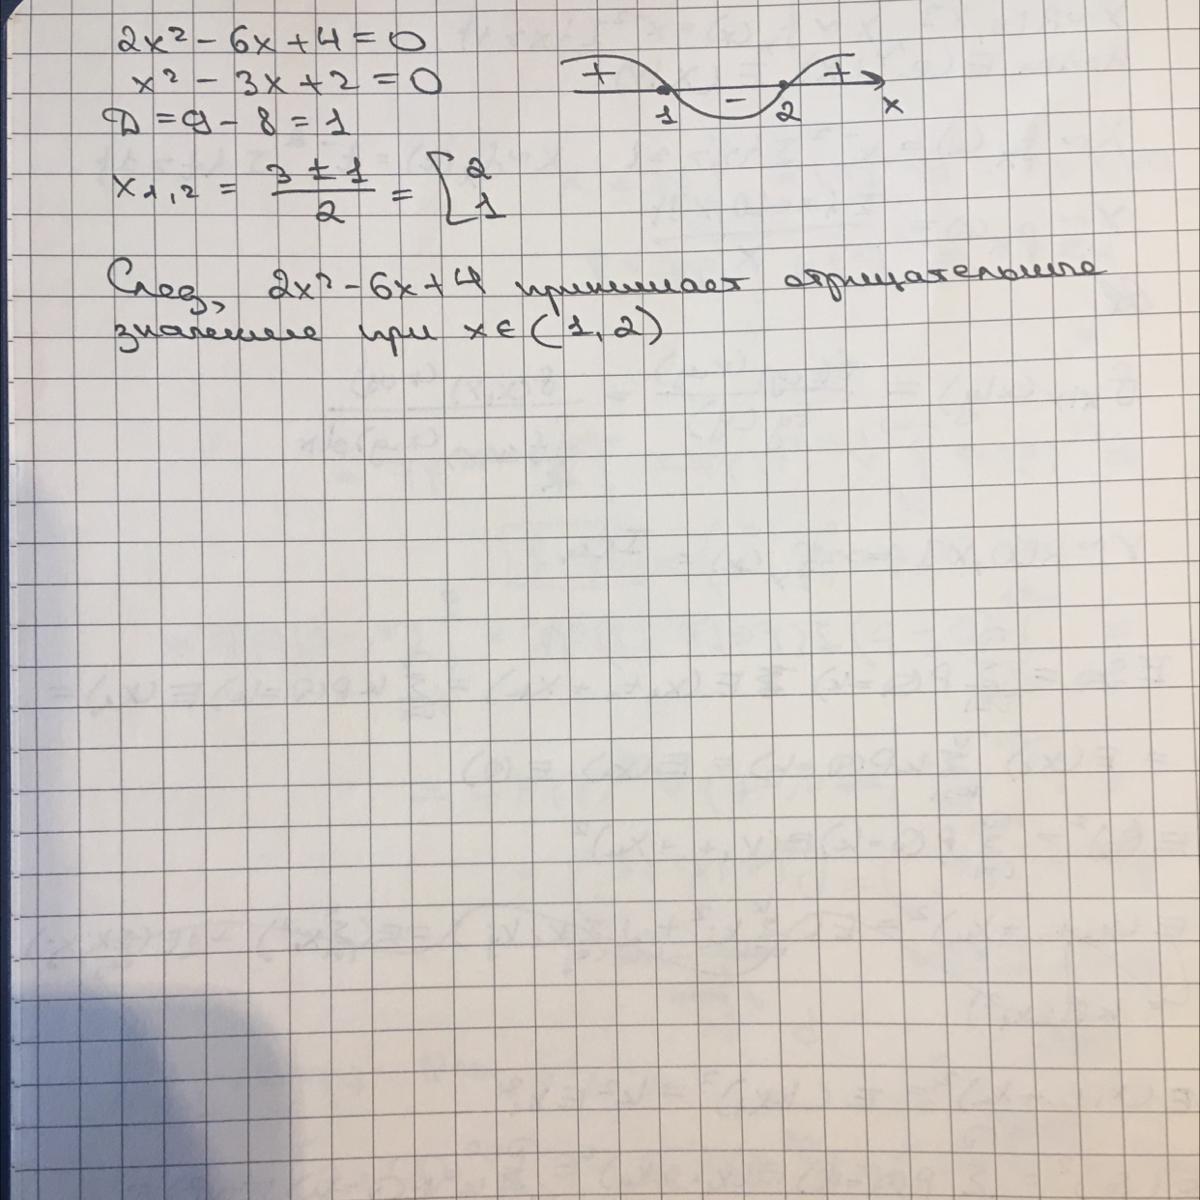 2x² - 6x + 4 = 0
x² - 3x + 2 = 0
D = 9 - 8 = 1
x₁,₂ = (3 ± 1)/2 = [ 2 1
+ - + 1 2 x
След, 2x² - 6x + 4 принимает отрицательные
значение при x ∈ (1, 2)